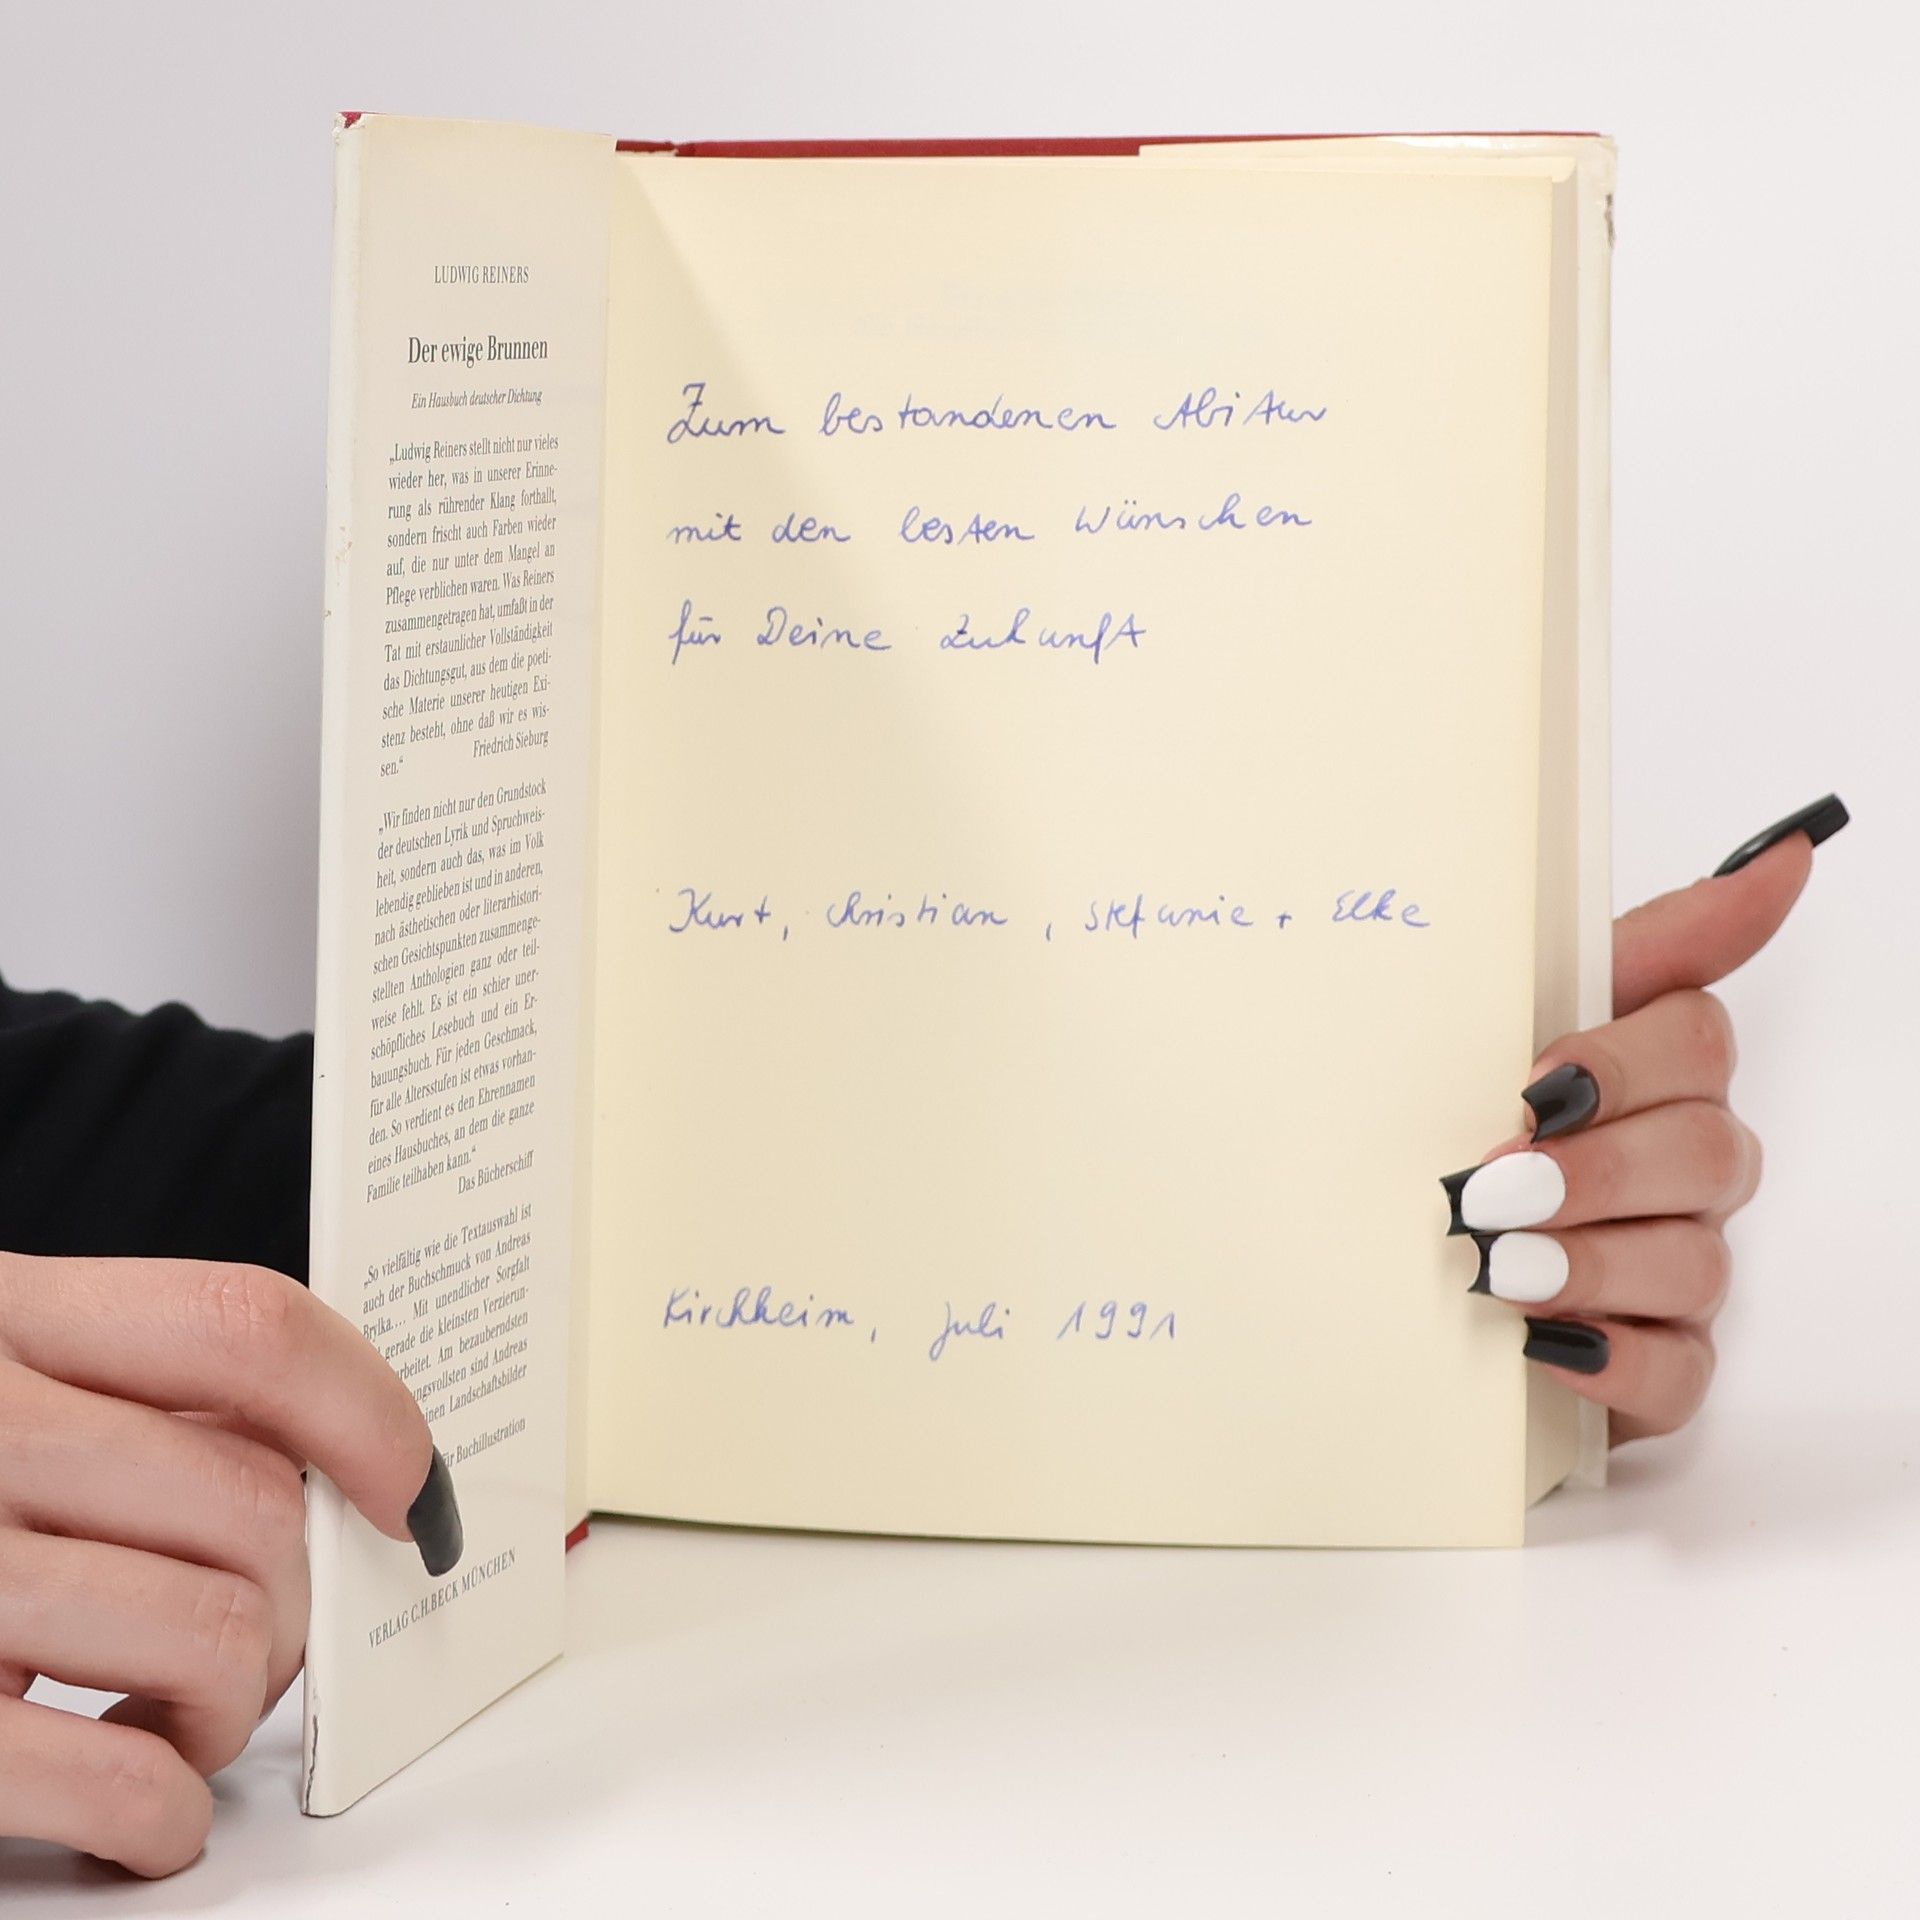 LUDWIG REINERS
Der ewige Brunnen
Ein Hausbuch deutscher Dichtung
„Ludwig Reiners stellt nicht nur vieles
wieder her, was in unserer Erinne-
rung als rührender Klang forthallt,
sondern frischt auch Farben wieder
auf, die nur unter dem Mangel an
Pflege verblichen waren. Was Reiners
zusammengetragen hat, umfaßt in der
Tat mit erstaunlicher Vollständigkeit
das Dichtungsgut, aus dem die poeti-
sche Materie unserer heutigen Exi-
stenz besteht, ohne daß wir es wis-
sen.“ Friedrich Sieburg
„Wir finden nicht nur den Grundstock
der deutschen Lyrik und Spruchweis-
heit, sondern auch das, was im Volk
lebendig geblieben ist und in anderen,
nach ästhetischen oder literarhistori-
schen Gesichtspunkten zusammenge-
stellten Anthologien ganz oder teil-
weise fehlt. Es ist ein schier uner-
schöpfliches Lesebuch und ein Er-
bauungsbuch. Für jeden Geschmack,
für alle Altersstufen ist etwas vorhan-
den. So verdient es den Ehrennamen
eines Hausbuches, an dem die ganze
Familie teilhaben kann.“
Das Bücherschiff
„So vielfältig wie die Textauswahl ist
auch der Buchschmuck von Andreas
Brylka.... Mit unendlicher Sorgfalt
gerade die kleinsten Verzierun-
arbeitet. Am bezauberndsten
ungsvollsten sind Andreas
einen Landschaftsbilder
für Buchillustration
VERLAG C.H.BECK MÜNCHEN
Zum bestandenen Abitur
mit den besten Wünschen
für Deine Zukunft
Kurt, Christian, Stefanie + Elke
Kirchheim, Juli 1991